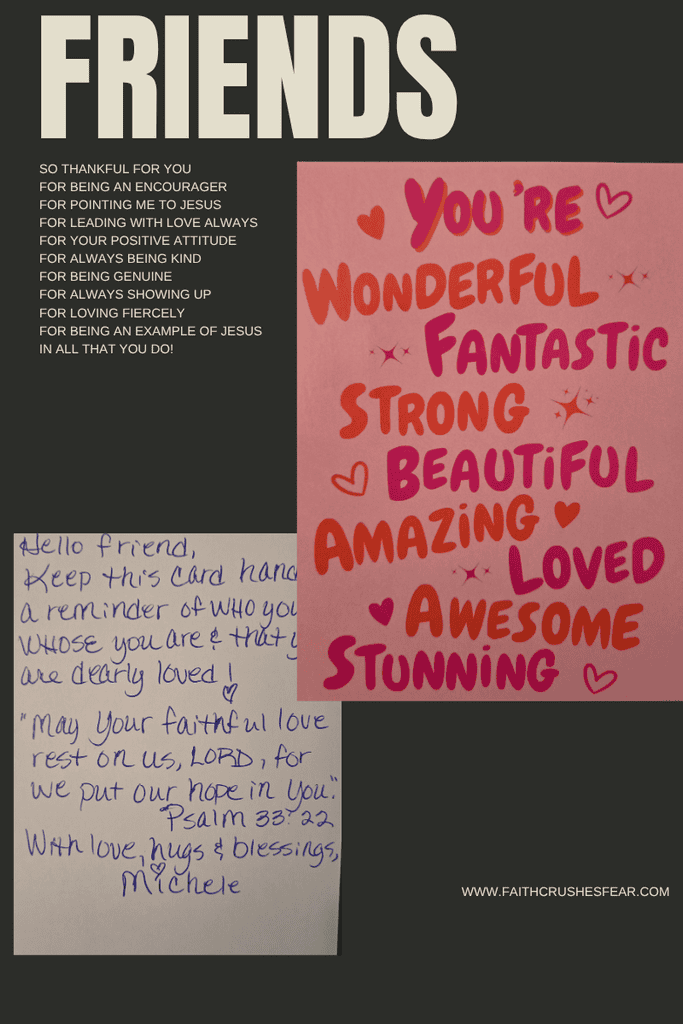 FRIENDS
SO THANKFUL FOR YOU
FOR BEING AN ENCOURAGER
FOR POINTING ME TO JESUS
FOR LEADING WITH LOVE ALWAYS
FOR YOUR POSITIVE ATTITUDE
FOR ALWAYS BEING KIND
FOR BEING GENUINE
FOR ALWAYS SHOWING UP
FOR LOVING FIERCELY
FOR BEING AN EXAMPLE OF JESUS
IN ALL THAT YOU DO!
YOU'RE
WONDERFUL
FANTASTIC
STRONG
BEAUTIFUL
AMAZING
LOVED
AWESOME
STUNNING
Hello friend,
Keep this card
a reminder of WHO
WHOSE you are & that
are dearly loved!
"May Your faithful love
rest on us, LORD, for
we put our hope in You."
Psalm 33:22
With love, hugs & blessings,
Michele
WWW.FAITHCRUSHESFEAR.COM